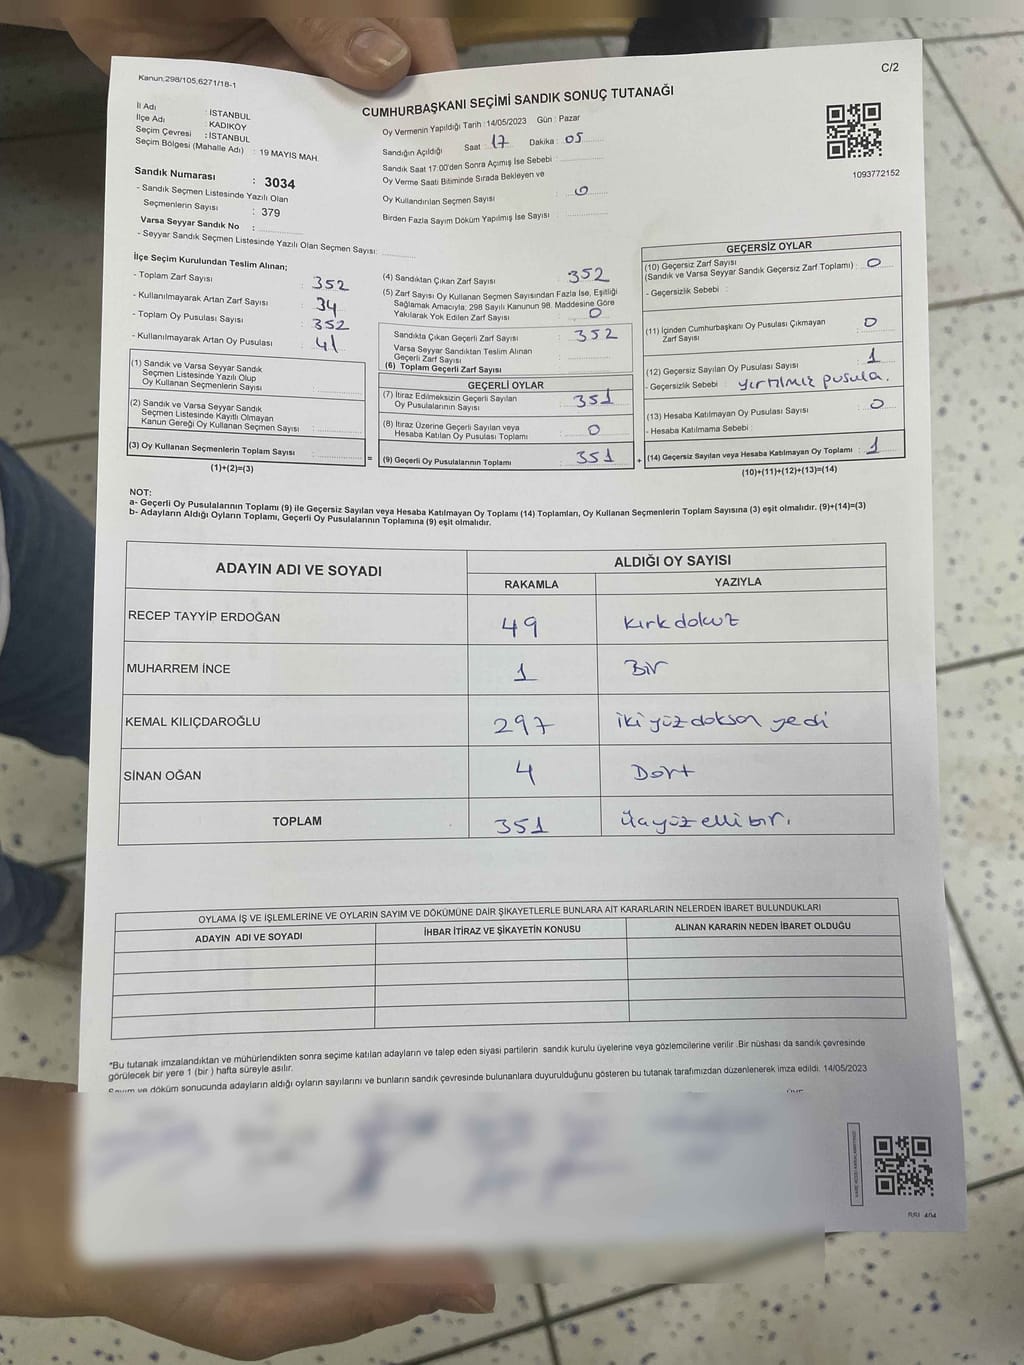 Kanun,298/105,6271/18-1
C/2
CUMHURBAŞKANI SEÇİMİ SANDIK SONUÇ TUTANAĞI
İl Adı : İSTANBUL
İlçe Adı : KADIKÖY
Seçim Çevresi : İSTANBUL
Seçim Bölgesi (Mahalle Adı) : 19 MAYIS MAH.
Sandık Numarası : 3034
- Sandık Seçmen Listesinde Yazılı Olan
Seçmenlerin Sayısı : 379
Varsa Seyyar Sandık No :
- Seyyar Sandık Seçmen Listesinde Yazılı Olan Seçmen Sayısı:
Oy Vermenin Yapıldığı Tarih : 14/05/2023 Gün : Pazar
Sandığın Açıldığı Saat : 17 Dakika : 05
Sandık Saat 17:00'den Sonra Açımış İse Sebebi :
Oy Verme Saati Bitiminde Sırada Bekleyen ve
Oy Kullandırılan Seçmen Sayısı : 0
Birden Fazla Sayım Döküm Yapılmış İse Sayısı :
1093772152
İlçe Seçim Kurulundan Teslim Alınan;
- Toplam Zarf Sayısı : 352
- Kullanılmayarak Artan Zarf Sayısı : 34
- Toplam Oy Pusulası Sayısı : 352
- Kullanılmayarak Artan Oy Pusulası : 41
(1) Sandık ve Varsa Seyyar Sandık
Seçmen Listesinde Yazılı Olup
Oy Kullanan Seçmenlerin Sayısı :
(2) Sandık ve Varsa Seyyar Sandık
Seçmen Listesinde Kayıtlı Olmayan
Kanun Gereği Oy Kullanan Seçmen Sayısı :
(3) Oy Kullanan Seçmenlerin Toplam Sayısı :
(1)+(2)=(3)
(4) Sandıktan Çıkan Zarf Sayısı : 352
(5) Zarf Sayısı Oy Kullanan Seçmen Sayısından Fazla İse, Eşitliği
Sağlamak Amacıyla; 298 Sayılı Kanunun 98. Maddesine Göre
Yakılarak Yok Edilen Zarf Sayısı : 0
Sandıkta Çıkan Geçerli Zarf Sayısı : 352
Varsa Seyyar Sandıktan Teslim Alınan
Geçerli Zarf Sayısı :
(6) Toplam Geçerli Zarf Sayısı :
GEÇERLİ OYLAR
(7) İtiraz Edilmeksizin Geçerli Sayılan
Oy Pusulalarının Sayısı : 351
(8) İtiraz Üzerine Geçerli Sayılan veya
Hesaba Katılan Oy Pusulası Toplamı : 0
= (9) Geçerli Oy Pusulalarının Toplamı : 351 +
GEÇERSİZ OYLAR
(10) Geçersiz Zarf Sayısı
(Sandık ve Varsa Seyyar Sandık Geçersiz Zarf Toplamı) : 0
- Geçersizlik Sebebi :
(11) İçinden Cumhurbaşkanı Oy Pusulası Çıkmayan
Zarf Sayısı : 0
(12) Geçersiz Sayılan Oy Pusulası Sayısı : 1
- Geçersizlik Sebebi : yırtılmış pusula.
(13) Hesaba Katılmayan Oy Pusulası Sayısı : 0
- Hesaba Katılmama Sebebi :
(14) Geçersiz Sayılan veya Hesaba Katılmayan Oy Toplamı : 1
(10)+(11)+(12)+(13)=(14)
NOT:
a- Geçerli Oy Pusulalarının Toplamı (9) ile Geçersiz Sayılan veya Hesaba Katılmayan Oy Toplamı (14) Toplamları, Oy Kullanan Seçmenlerin Toplam Sayısına (3) eşit olmalıdır. (9)+(14)=(3)
b- Adayların Aldığı Oyların Toplamı, Geçerli Oy Pusulalarının Toplamına (9) eşit olmalıdır.
ADAYIN ADI VE SOYADI ALDIĞI OY SAYISI
RAKAMLA YAZIYLA
RECEP TAYYİP ERDOĞAN 49 kırk dokuz
MUHARREM İNCE 1 Bir
KEMAL KILIÇDAROĞLU 297 iki yüz doksan yedi
SİNAN OĞAN 4 Dört
TOPLAM 351 üçyüz elli bir.
OYLAMA İŞ VE İŞLEMLERİNE VE OYLARIN SAYIM VE DÖKÜMÜNE DAİR ŞİKAYETLERLE BUNLARA AİT KARARLARIN NELERDEN İBARET BULUNDUKLARI
ADAYIN ADI VE SOYADI İHBAR İTİRAZ VE ŞİKAYETİN KONUSU ALINAN KARARIN NEDEN İBARET OLDUĞU
*Bu tutanak imzalandıktan ve mühürlendikten sonra seçime katılan adayların ve talep eden siyasi partilerin sandık kurulu üyelerine veya gözlemcilerine verilir .Bir nüshası da sandık çevresinde
görülecek bir yere 1 (bir ) hafta süreyle asılır.
Sayım ve döküm sonucunda adayların aldığı oyların sayılarını ve bunların sandık çevresinde bulunanlara duyurulduğunu gösteren bu tutanak tarafımızdan düzenlenerek imza edildi. 14/05/2023